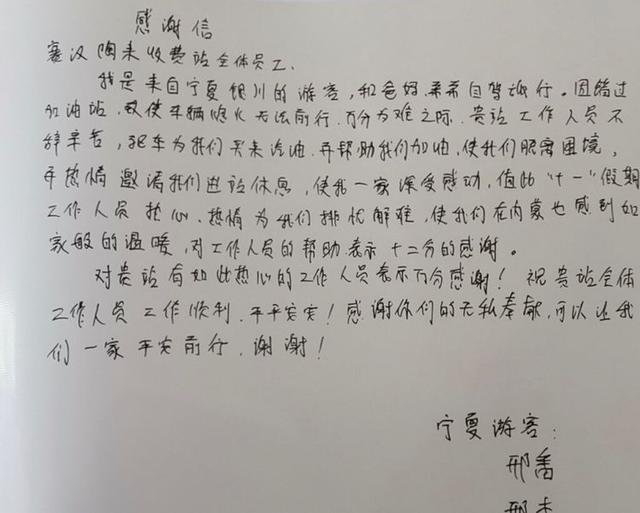 感谢信
赛汉陶来收费站全体员工.
我是来自宁夏银川的游客,和爸妈.弟弟自驾旅行。因错过
加油站,致使车辆熄火无法前行.万分为难之际.贵站工作人员不
辞辛苦,驱车为我们买来汽油.再帮助我们加油,使我们脱离困境,
并热情邀请我们进站休息,使我一家深受感动,值此"十一"假期
工作人员热心.热情为我们排忧解难,使我们在内蒙也感到如
家般的温暖,对工作人员的帮助表示十二分的感谢。
对贵站有如此热心的工作人员表示万分感谢!祝贵站全体
工作人员工作顺利.平平安安!感谢你们的无私奉献,可以让我
们一家平安前行.谢谢!
宁夏游客:
邢
邢